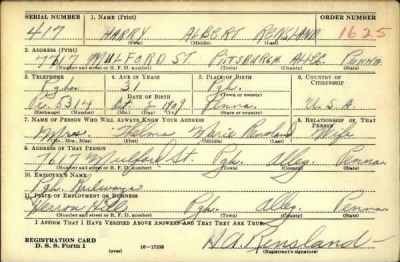 SERIAL NUMBER
1. NAME (Print)
ORDER NUMBER
417
HARRY ALBERT RENSLAND
1625
(First) (Middle) (Last)
2. ADDRESS (Print)
7617 MULFORD ST. PITTSBURGH ALLEG. PENNA.
(Number and street or R. F. D. number) (Town) (County) (State)
3. TELEPHONE
4. AGE IN YEARS
5. PLACE OF BIRTH
6. COUNTRY OF CITIZENSHIP
31
Pgh.
DATE OF BIRTH
(Town or county)
5314
1909
Penna.
U. S. A.
(Exchange) (Number)
(Mo.) (Day) (Yr.)
(State or country)
7. NAME OF PERSON WHO WILL ALWAYS KNOW YOUR ADDRESS
8. RELATIONSHIP OF THAT PERSON
Mrs. Helma Marie Rensland
Wife
(Mr., Mrs., Miss) (First) (Middle) (Last)
9. ADDRESS OF THAT PERSON
7617 Mulford St. Pgh. Alleg. Penna.
(Number and street or R. F. D. number) (Town) (County) (State)
10. EMPLOYER'S NAME
Pgh. Railways
11. PLACE OF EMPLOYMENT OR BUSINESS
Herron Hill Pgh. Alleg. Penna.
(Number and street or R. F. D. number) (Town) (County) (State)
I AFFIRM THAT I HAVE VERIFIED ABOVE ANSWERS AND THAT THEY ARE TRUE.
REGISTRATION CARD
D. S. S. Form 1
(over)
H. A. Rensland